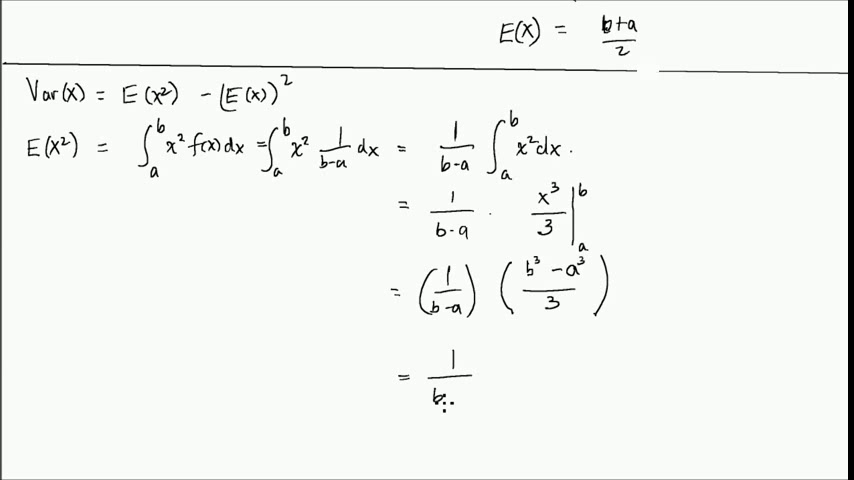 E(X) = b+a/2
Var(X) = E(X²) - (E(X))²
E(X²) = ∫_a^b x² f(x) dx = ∫_a^b x² 1/(b-a) dx = 1/(b-a) ∫_a^b x² dx.
= 1/(b-a) · x³/3 |_a^b
= (1/(b-a)) ((b³ - a³)/3)
= 1/b